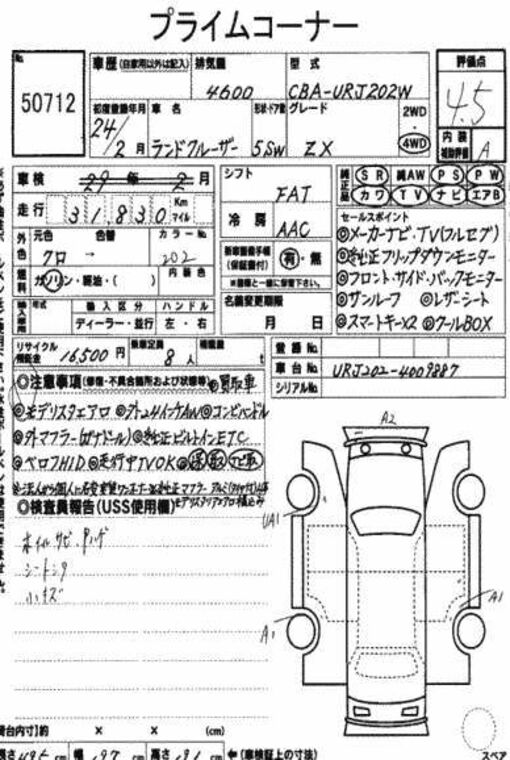 プライムコーナー
No.
50712
車歴 (自家用以外は記入)
排気量
4600
型式
CBA-URJ202W
評価点
4.5
初度登録年月
24/2月
車名
ランドクルーザー
形状・ドア数
5SW
グレード
ZX
2WD
4WD
内装
補助評価
A
車検
29年 2月
シフト
FAT
純正品
SR 純AW PS PW
カワ TV ナビ エアB
走行
31,830 Km
マイル
冷房
AAC
セールスポイント
◎メーカーナビ・TV(フルセグ)
◎純正フリップダウンモニター
◎フロント・サイド・バックモニター
◎サンルーフ ◎レザーシート
◎スマートキー×2 ◎クールBOX
外色
元色
色替
カラーNo.
クロ →
202
新車整備手帳
(保証書付)
有・無
※書類と一緒に保管下さい。
燃料
ガソリン・軽油・( )
内装色
名義変更期限
月 日
輸入車用
年式
輸入区分
ハンドル
ディーラー・並行
左・右
リサイクル
預託金
16,500円
乗車定員
8人
積載量
t
登録No.
車台No.
URJ202-4009887
シリアルNo.
◎注意事項(修復・不具合箇所および状態等) ◎買取車
◎モデリスタエアロ ◎外24インチAW ◎コンビハンドル
◎外マフラー(ガナドール) ◎純正ビルトインETC
◎ベロフHID ◎走行中TVOK
◎検査員報告(USS使用欄)
ホイルサビ、
シートシワ
小キズ
A2
UA1
A1
A1
荷台内寸】約 × × (cm)
長さ 495 cm 幅 197 cm 高さ 191 cm
←(車検証上の寸法)
スペア